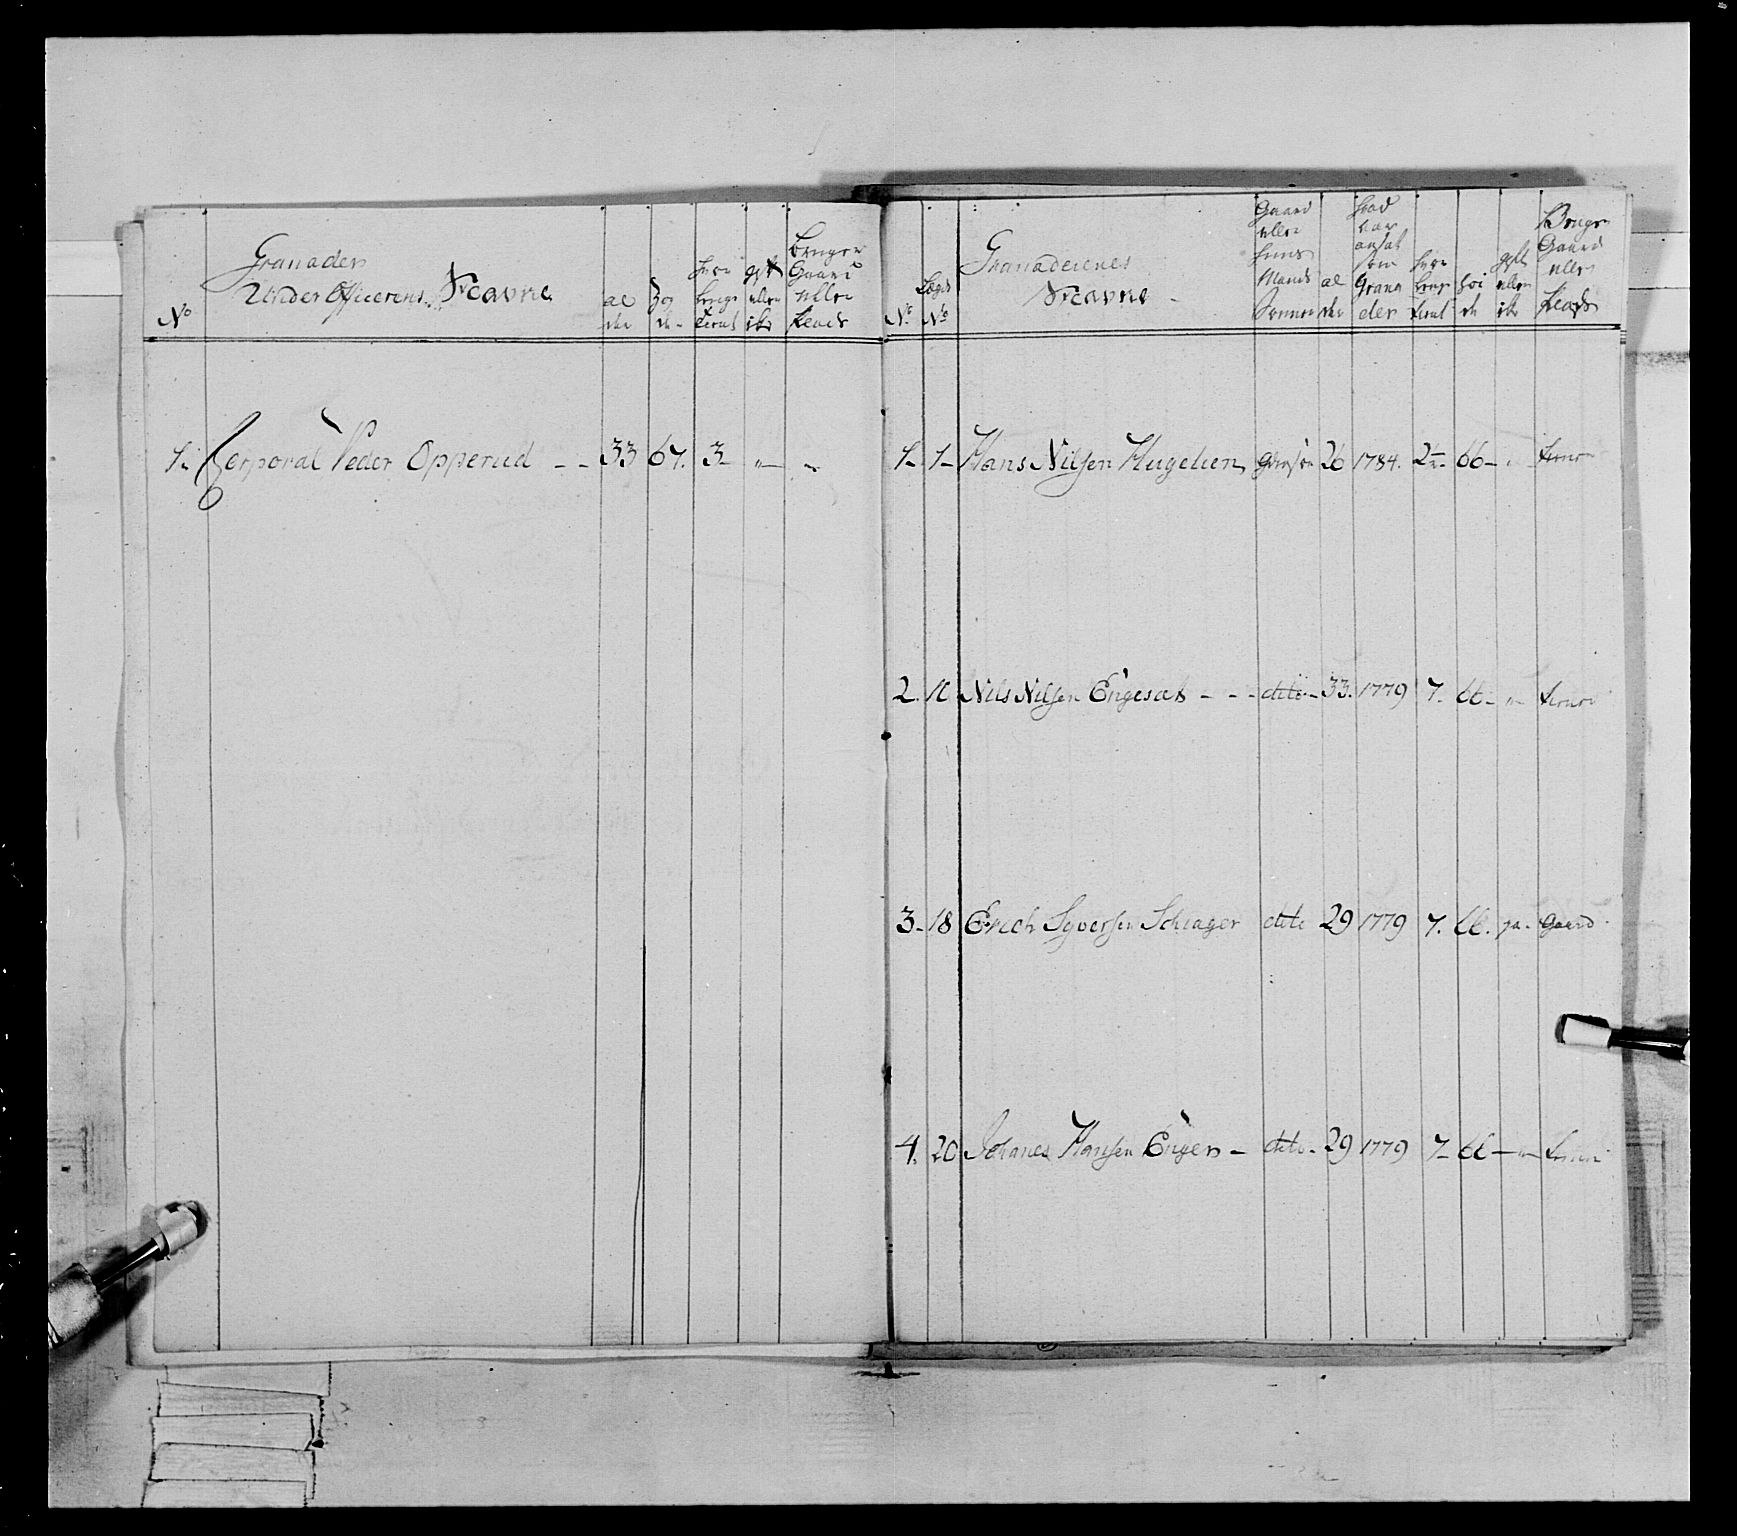 Granader
Under Officerens Navne
No
al
der
Hvor
længe
tient
gift
eller
ike
bruger
Gaard
eller
Plads
1. Corporal Peder Opperud - - 33 67. 3 - " - "
Granaderenes
Navne
No
Lægds
No
Gaard
eller
Huus
Mands
Sønner
al
der
Hvad
aar
ansat
som
Grana
der
Hvor
længe
tient
Høi
de
gift
eller
ike
Bruger
Gaard
eller
Plads
1 - 1 - Hans Nilsen Hugelien 26 1784. 2 66 -
2. 16 Nils Nilsen Engesæt - - - dito - 33. 1779 7. 66 - " -
3 - 18 Erich Syversen Schiager dito 29 1779 7. 66. ja. Gaard
4. 20 Johanes Hansen Engen - dito - 29 1779 7 - 66 - " -